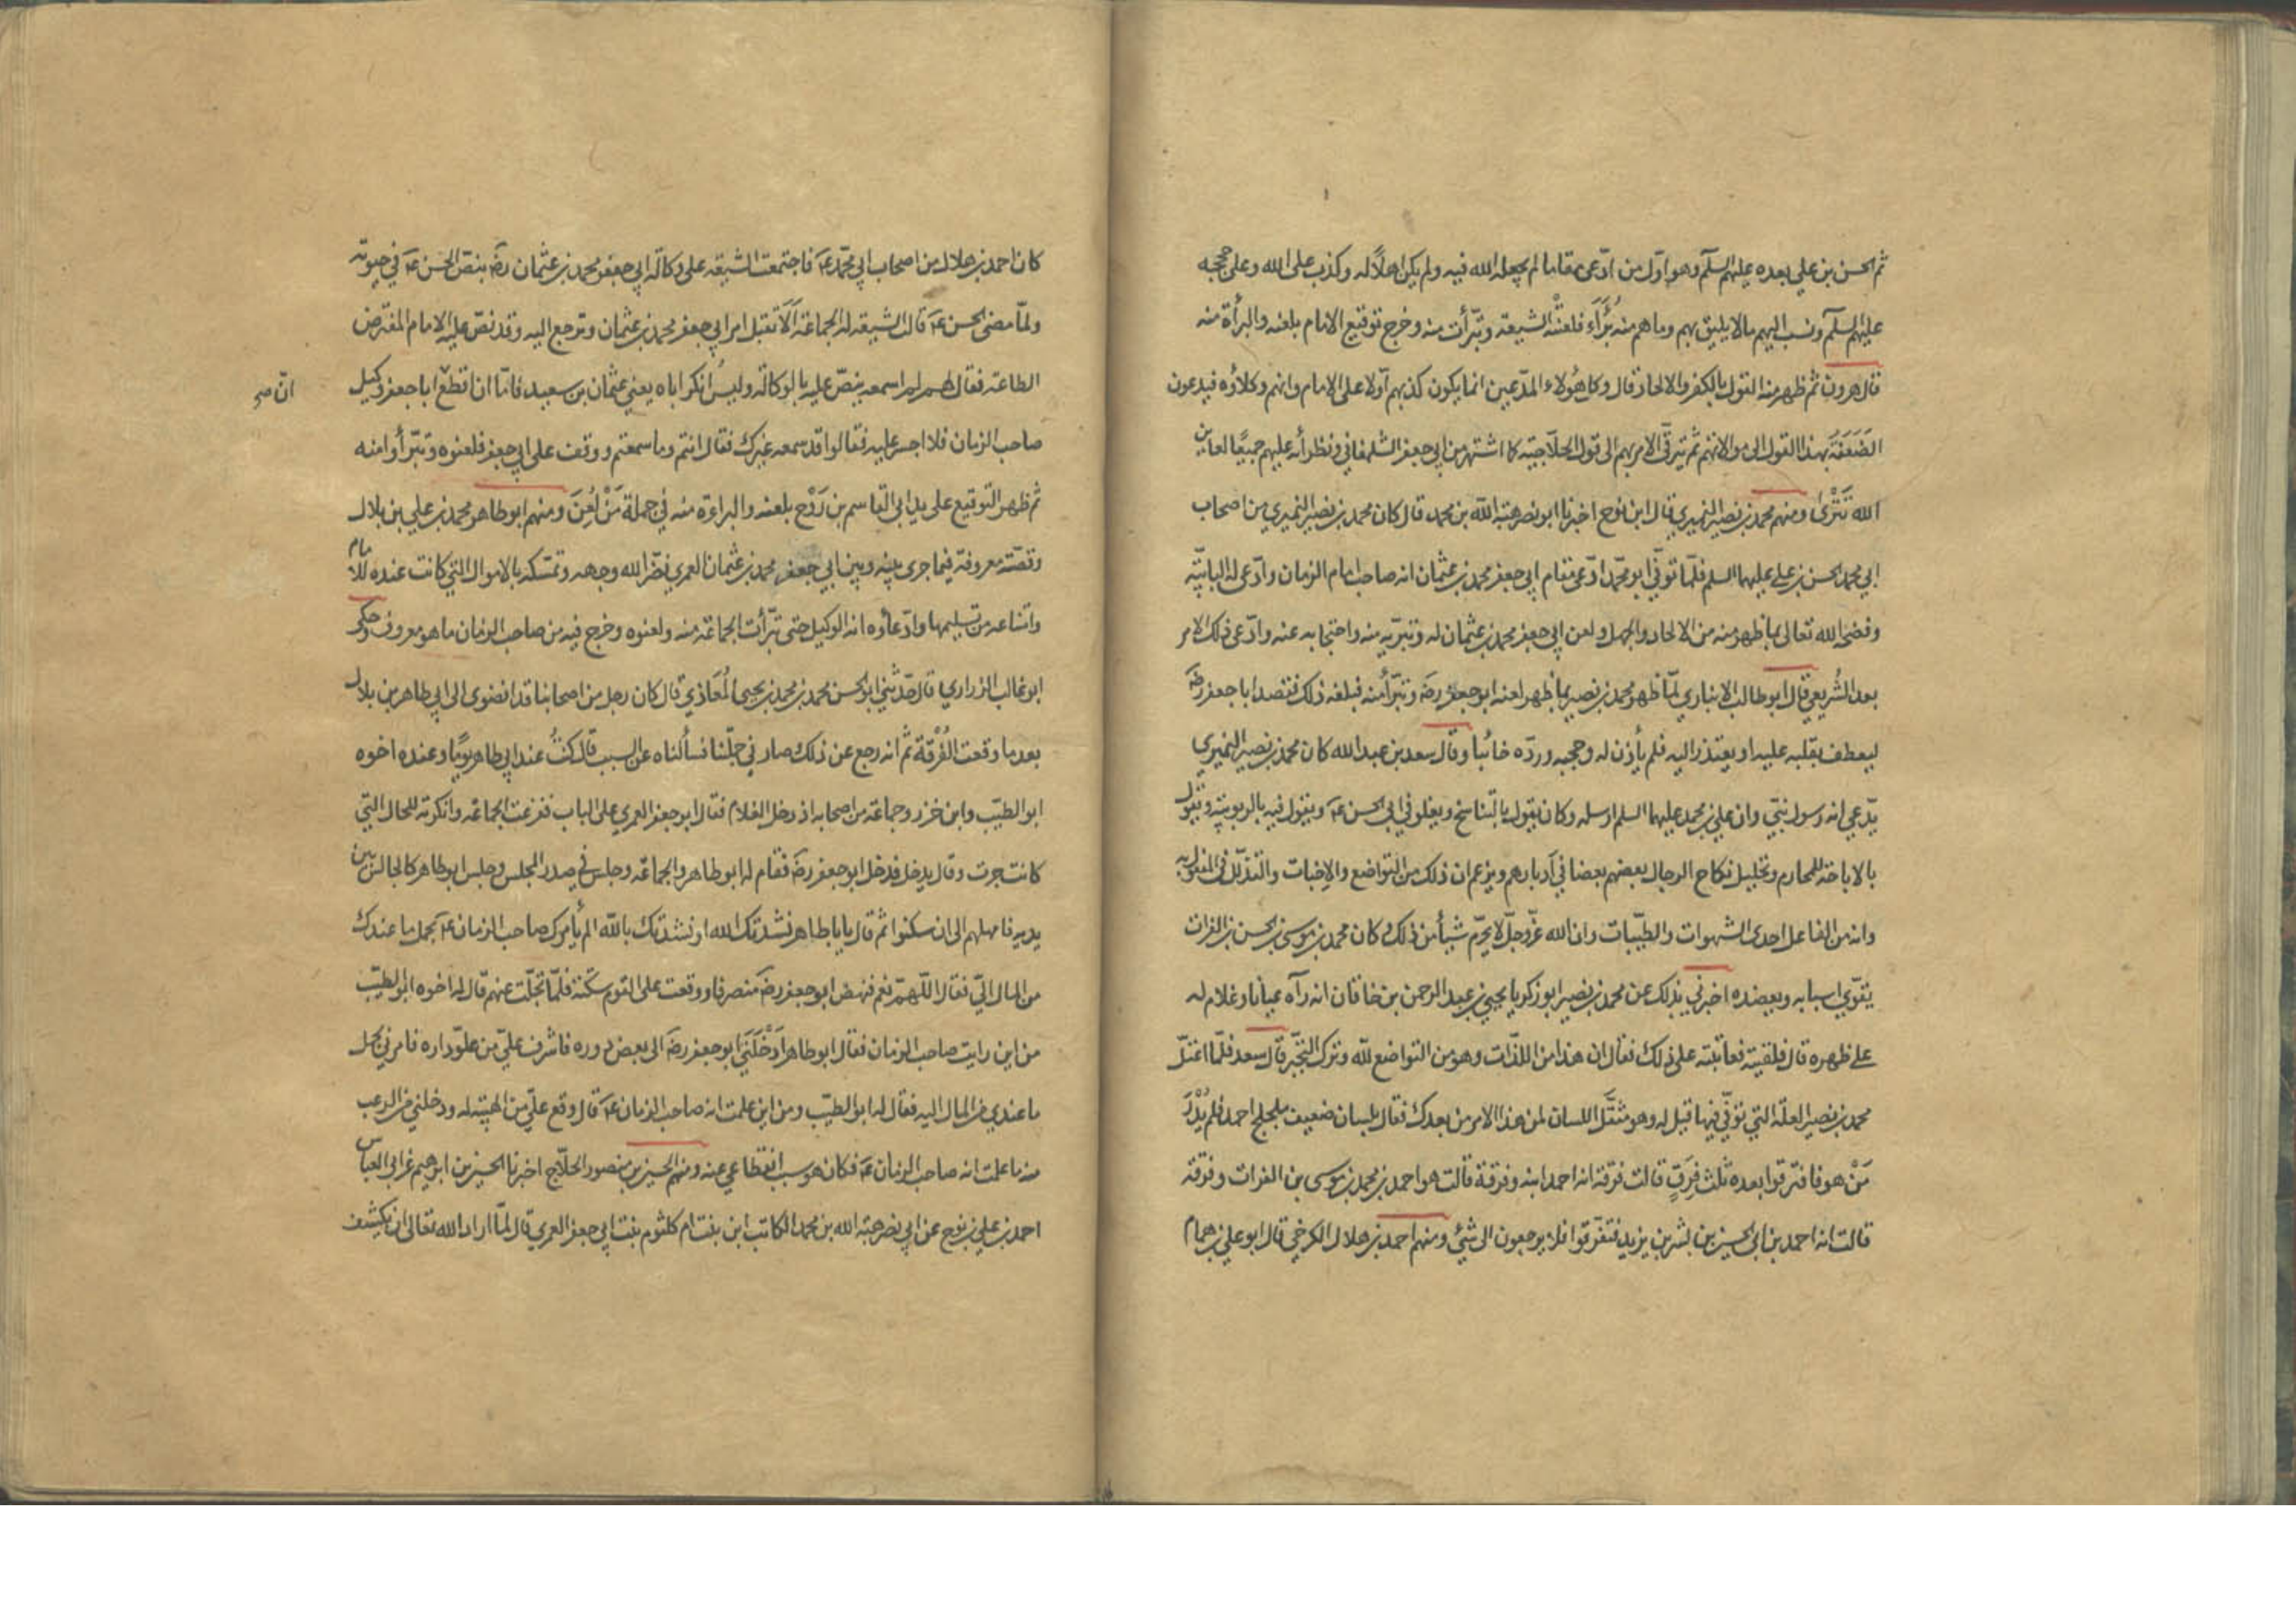 ثم الحسن بن علي بعده عليهم السلم وهو اوّل من ادّعى مقاما لم يجعله الله فيه ولم يكن اهلًا له وكذب على الله وعلى حججه
عليهم السلم ونسب اليهم ما لا يليق بهم وما هم منه بُرَآء فلعنته الشيعة وتبّرأت منه وخرج توقيع الامام بلعنه والبرأة منه
قال هرون ثم ظهر منه القول بالكفر والالحاد قال وكل هؤلاء المدّعين انما يكون كذبهم اوّلا على الامام وانهم وكلاؤه فيدعون
الضَعَفَةَ بهذا القول الى موالاتهم ثم يترقّى الامر بهم الى قول الحلّاجيّة كما اشتهر من ابي جعفر الشلمغاني ونظرائه عليهم جميعًا لعاين
الله تَتْرىٰ ومنهم محمد بن نصير النميري قال ابن نوح اخبرنا ابو نصر هبة الله بن محمد قال كان محمد بن نصير النميري من اصحاب
ابي محمد الحسن بن علي عليهما السلم فلمّا توفّي ابو محمّد ادّعى مقام ابي جعفر محمد بن عثمان انه صاحب امام الزمان وادّعى له البابيّة
وفضحه الله تعالى بما ظهر منه من الالحاد والجهل ولعن ابي جعفر محمد بن عثمان له وتبرّيه منه واحتجابه عنه وادّعى ذلك الامر
بعد الشُّريعي قال ابو طالب الانباري لمّا ظهر محمد بن نصير بما ظهر لعنه ابو جعفر رضَ وتبرّأ منه فبلغه ذلك فقصد ابا جعفر رضَ
ليعطف بقلبه عليه او يعتذر اليه فلم يأذن له وحجبه وردّه خائبا وقال سعد بن عبد الله كان محمد بن نصير النميري
يدّعي انه رسول نبيّ وان علي بن محمد عليهما السلم ارسله وكان يقول بالتناسخ ويغلو في ابي الحسن عَ ويقول فيه بالربوبيّة ويقول
بالاباحة للمحارم وتحليل نكاح الرجال بعضهم بعضا في أدبارهم ويزعم ان ذلك من التواضع والاخبات والتذلّل في المفعول به
وانه من الفاعل احدى الشهوات والطيّبات وان الله عزّ وجلّ لا يحرّم شيأ من ذلك وكان محمد بن موسى بن الحسن بن الفرات
يقوّي اسبابه ويعضده اخبرني بذلك عن محمد بن نصير ابو زكريا يحيى بن عبد الرحمن بن خاقان انه رآه عيانا وغلام له
على ظهره قال فلقيته فعاتبته على ذلك فقال ان هذا من اللذّات وهو من التواضع لله وترك التجبّر قال سعد فلمّا اعتلّ
محمد بن نصير العلة التي توفّي فيها قيل له وهو مثقَّل اللسان لمن هذا الامر من بعدك فقال بلسان ضعيف ملجلج احمد فلم يُدْرَ
مَنْ هو فافترقوا بعده ثلث فِرَقٍ قالت فرقة انه احمد ابنه وفرقة قالت هو احمد بن محمد بن موسى بن الفرات وفرقة
قالت انه احمد بن ابي الحسين بن بشر بن يزيد فتفرّقوا فلا يرجعون الى شئ ومنهم احمد بن هلال الكرخي قال ابو علي بن همام
كان احمد بن هلال من اصحاب ابي محمّد عَ فاجتمعت الشيعة على وكالة ابي جعفر محمد بن عثمان رضَ بنصّ الحسن عَ في حيوته
ولمّا مضى الحسن عَ قالت الشيعة له الجماعة ألا تقبل امر ابي جعفر محمد بن عثمان وترجع اليه وقد نصّ عليه الامام المفترض
الطاعة فقال لهم لم اسمعه ينصّ عليه بالوكالة وليس انكر اباه يعني عثمان بن سعيد فامّا ان اقطع ابا جعفر وكيل
انّ صح
صاحب الزمان فلا اجسر عليه فقالوا قد سمعه غيرك فقال انتم وما سمعتم ووقف على ابي جعفر فلعنوه وتبرّأوا منه
ثم ظهر التوقيع على يد ابي القاسم بن رَوْح بلعنه والبراءة منه في جملة مَنْ لُعِنَ ومنهم ابو طاهر محمد بن علي بن بلال
وقصّته معروفة فيما جرى بينه وبين ابي جعفر محمد بن عثمان العمري نضّر الله وجهه وتمسّكه بالاموال التي كانت عنده للامام
وامتناعه من تسليمها وادّعاؤه انه الوكيل حتى تبرّأت الجماعة منه ولعنوه وخرج فيه من صاحب الزمان ما هو معروف وحكى
ابو غالب الزراري قال حدّثني ابو الحسن محمد بن محمد بن يحيى المُعَاذي قال كان رجل من اصحابنا قد انضوى الى ابي طاهر بن بلال
بعد ما وقعت الفُرْقة ثم انه رجع عن ذلك وصار في جملتنا فسألناه عن السبب قال كنتُ عند ابي طاهر يومًا وعنده اخوه
ابو الطيّب وابن خزر وجماعة من اصحابه اذ دخل الغلام فقال ابو جعفر العمري على الباب ففزعت الجماعة وانكرته للحال التي
كانت جرت وقال يدخل فدخل ابو جعفر رضَ فقام له ابو طاهر والجماعة وجلس في صدر المجلس وجلس ابو طاهر كالجالس بين
يديه فامهلهم الى ان سكتوا ثم قال يابا طاهر نشدتك الله او نشدتك بالله الم يأمرك صاحب الزمان عَ بحمل ما عندك
من المال اليّ فقال اللّهمّ نعم فنهض ابو جعفر رضَ منصرفا ووقعت على القوم سكتة فلمّا تجلّت عنهم قال له اخوه ابو الطيّب
من اين رايت صاحب الزمان فقال ابو طاهر ادخَلَني ابو جعفر رضَ الى بعض دوره فاشرف عليّ من علوّ داره فامرني بحمل
ما عندي من المال اليه فقال له ابو الطيّب ومن اين علمت انه صاحب الزمان عَ قال وقع عليّ من الهيبة له ودخلني من الرعب
منه ما علمت انه صاحب الزمان عَ فكان هو سبب انقطاعي عنه ومنهم الحسين بن منصور الحلّاج اخبرنا الحسين بن ابرهيم عن ابي العباس
احمد بن علي بن نوح عن ابي نصر هبة الله بن محمد الكاتب ابن بنت ام كلثوم بنت ابي جعفر العمري قال لمّا اراد الله تعالى ان يكشف